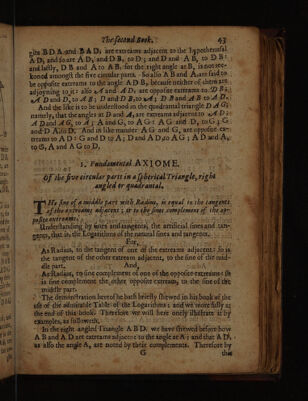 The second Book. 43
gles B D A and B A D, are extreams adjacent to the hypothenusal
A D, and so are A D, and D B, to D; and D and A B, to D B:
and lastly, D B and A to A B. for the right angle at B, is not rec-
koned amongst the five circular parts. So also A B and A, are said to
be opposite extreams to the angle A D B, because neither of them are
adjoyning to it: also A and A D, are opposite extreams to D B;
A D and D, to A B; D and D B, to A; D B and A B to A D.
And the like is to be understood in the quadrantal triangle D A G;
namely, that the angles at D and A, are extreams adjacent to A D:
A D and A G, to A; A and G, to A G: A G and D, to G; G
and D A, to D. And in like manner A G and G, are opposite ex-
treams to A D: G and D to A; D and A D, to A G; A D and A,
to G, A and A G to D,
1. Fundamental AXIOME.
Of the five circular parts in a spherical Triangle, right
angled or quadrantal.
THe sine of a middle part with Radius, is equal to the tangents
of the extreams adjacent; or to the sines complement of the op-
posite extreams.
Understanding by sines and tangents, the artificial sines and tan-
gents, that is, the Logarithms of the natural sines and tangents.
For,
As Radius, to the tangent of one of the extreams adjacent: so is
the tangent of the other extream adjacent, to the sine of the mid-
dle part. And,
As Radius, to sine complement of one of the opposite extreams: so
is sine complement the other opposite extream, to the sine of the
middle part.
The demonstration hereof he hath briefly shewed in his book of the
use of the admirable Table of the Logarithms: and we more fully at
the end of this book. Therefore we will here onely illustrate it by
examples, as followeth.
In the right angled Triangle A B D. we have shewed before how
A B and A D are extreams adjacent to the angle at A; and that A D,
as also the angle A, are noted by their complements. Therefore by
G the